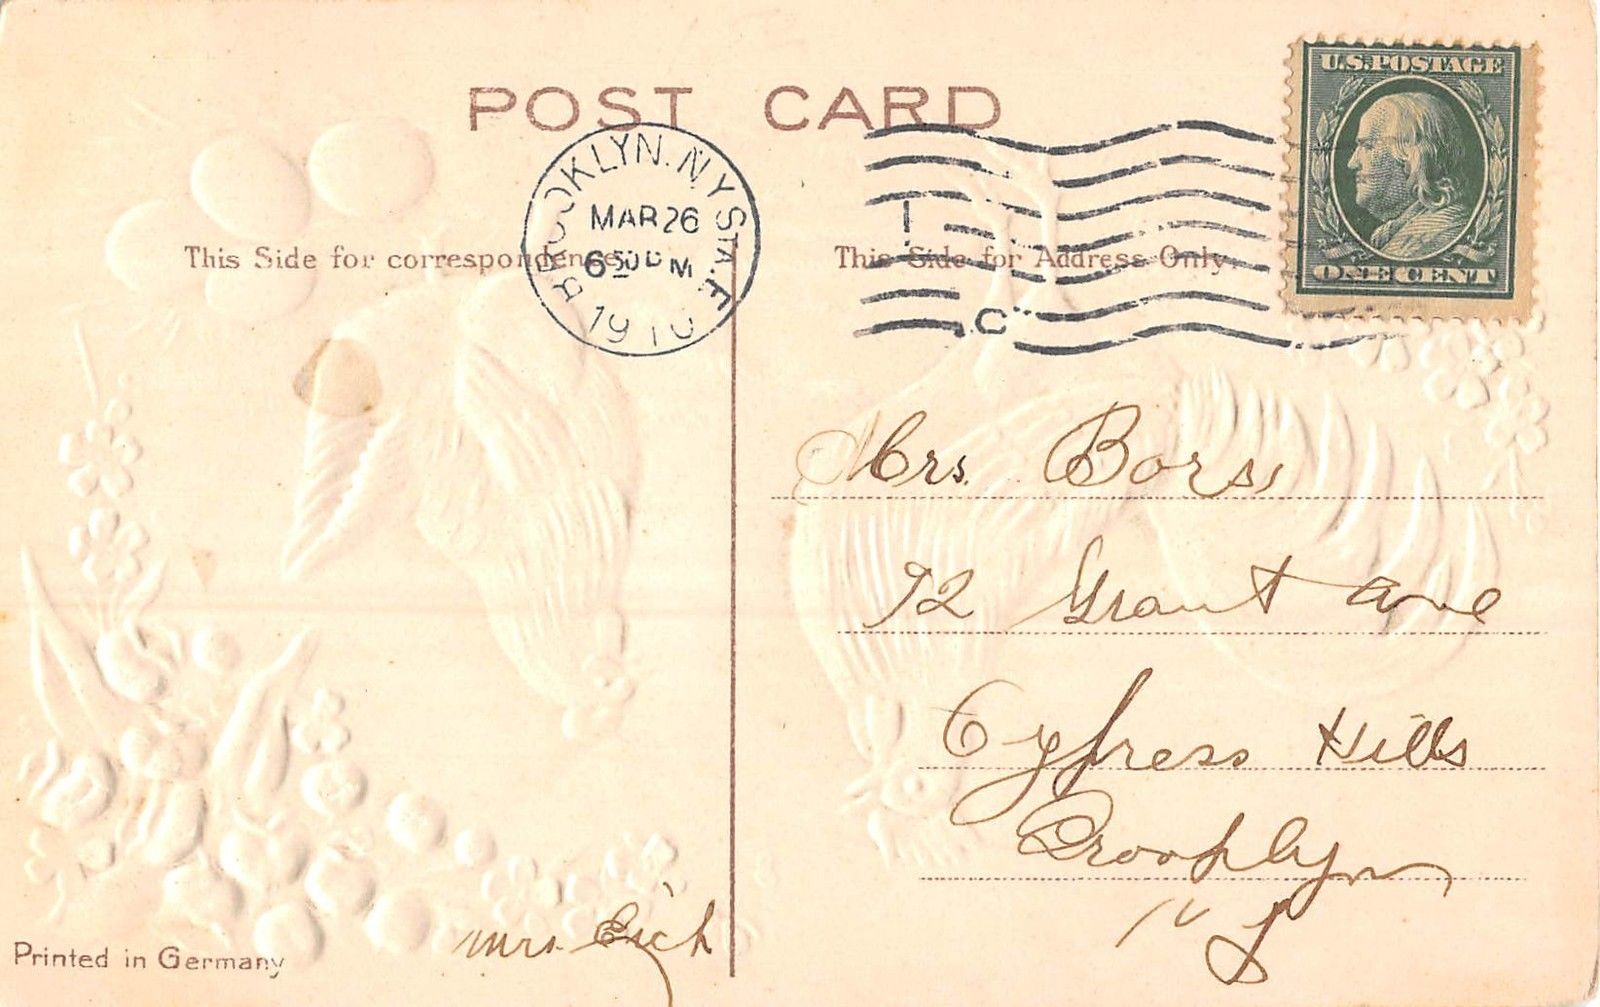 POST CARD
U.S.POSTAGE
ONE CENT
BROOKLYN. N.Y. STA. F.
MAR 26
6 30 P M
1910
C
This Side for correspondence
This Side for Address Only.
Mrs. Bors,
92 Grant Ave
Cypress Hills
Brooklyn
N Y
Mrs. Eich
Printed in Germany